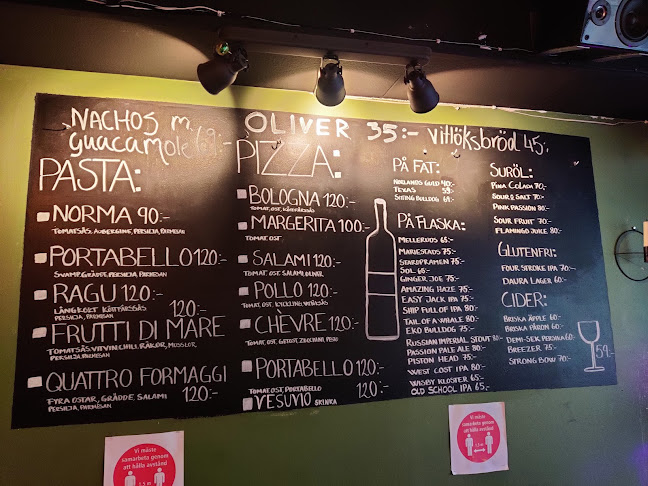 NACHOS m.
Guacamole 69:-
OLIVER 35:-
Vitlöksbröd 45:-
PASTA:
NORMA 90:-
TOMATSÅS, AUBERGINE, PERSILJA, PARMISAN
PORTABELLO 120:-
SVAMP, GRÄDDE, PERSILJA, PARMISAN
RAGU 120:-
LÅNGKOKT KÖTTFÄRSSÅS
PERSILJA, PARMISAN
FRUTTI DI MARE 120:-
TOMATSÅS, VITVIN, CHILI, RÄKOR, MUSSLOR
PERSILJA, PARMISAN
QUATTRO FORMAGGI 120:-
FYRA OSTAR, GRÄDDE, SALAMI
PERSILJA, PARMISAN
PIZZA:
BOLOGNA 120:-
TOMAT, OST, KÖTTFÄRSSÅS
MARGERITA 100:-
TOMAT, OST
SALAMI 120:-
TOMAT, OST, SALAMI, OLIVER
POLLO 120:-
TOMAT, OST, KYCKLING
CHÈVRE 120:-
TOMAT, OST, GETOST, ZUCCHINI, PESTO
PORTABELLO 120:-
TOMAT, OST, PORTABELLO
VESUVIO SKINKA
PÅ FAT:
NORRLANDS GULD 40:-
TEXAS 59:-
SITTING BULLDOG 69:-
PÅ FLASKA:
MELLERUDS 65:-
MARIESTADS 75:-
STAROPRAMEN 75:-
SOL 65:-
GINGER JOE 75:-
AMAZING HAZE 75:-
EASY JACK IPA 75:-
SHIP FULL OF IPA 80:-
TAIL OF A WHALE 80:-
EKO BULLDOG 75:-
RUSSIAN IMPERIAL STOUT 80:-
PASSION PALE ALE 80:-
PISTON HEAD 75:-
WEST COST IPA 80:-
WISBY KLOSTER 65:-
OLD SCHOOL IPA 65:-
SURÖL:
PINA COLADA 70:-
SOUR & SALT 70:-
PINK PASSION 80:-
SOUR FRUIT 70:-
FLAMINGO JUICE 80:-
GLUTENFRI:
FOUR STROKE IPA 70:-
DAURA LAGER 60:-
CIDER:
BRISKA ÄPPLE 60:-
BRISKA PÄRON 60:-
DEMI-SEK PERSIKA 80:-
BREEZER 75:-
STRONG BOW 70:-
59:-
Vi måste
samarbeta genom
att hålla avstånd
1,5 m
Vi måste
samarbeta genom
att hålla avstånd
1,5 m